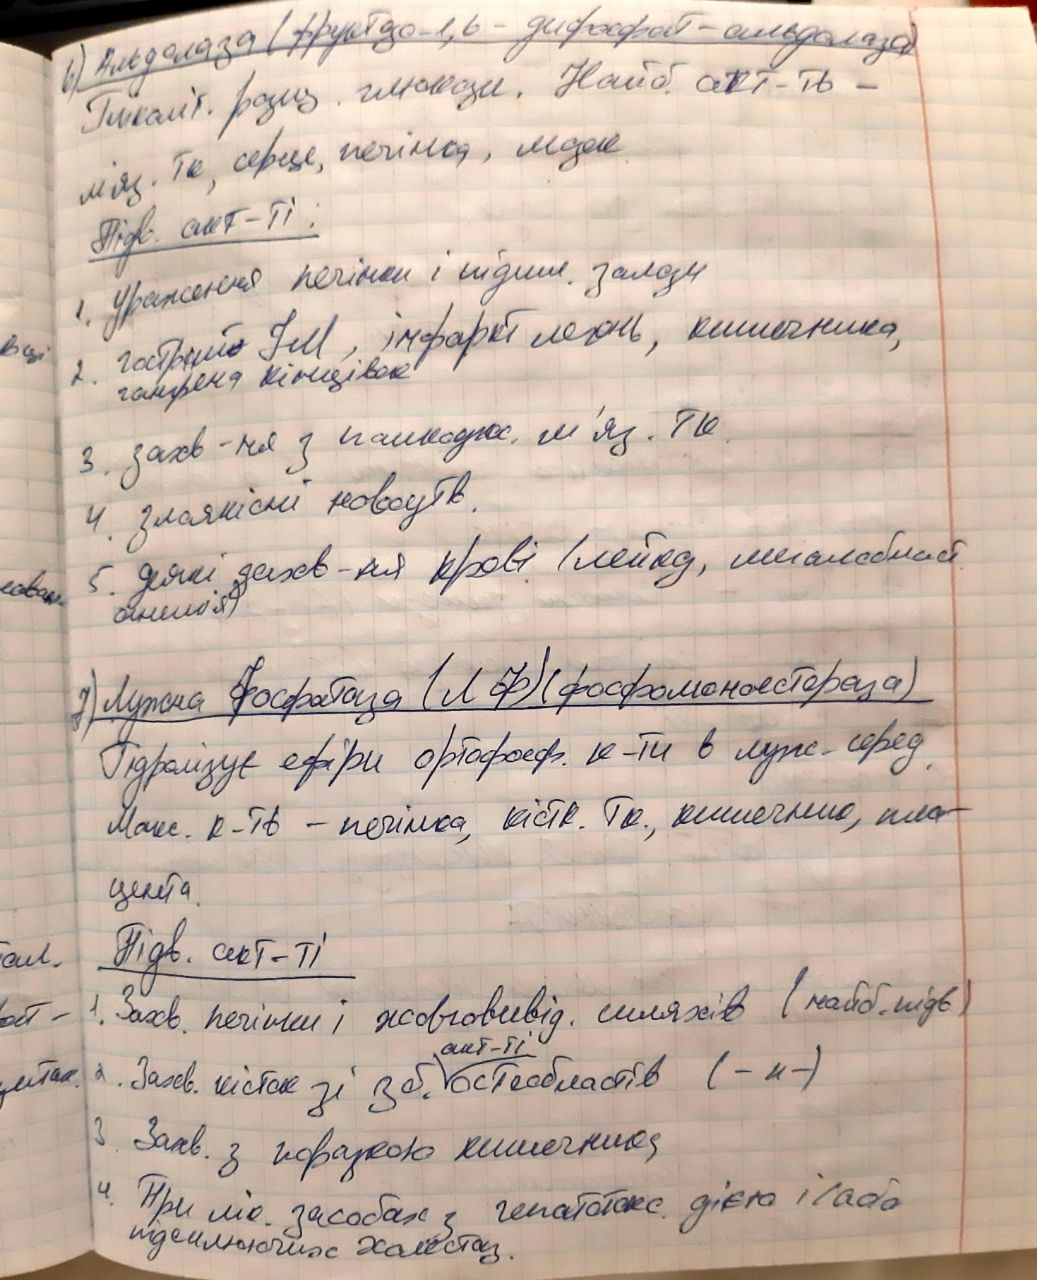 6) Альдолаза (фруктозо-1,6-дифосфат-альдолаза)
Гліколіт. розщ. глюкози. Найб. акт-ть –
м'яз. тк, серце, печінка, мозок
Підв. акт-ті:
1. Ураження печінки і підшл. залози
2. гострий ІМ, інфаркт легень, кишечника,
гангрена кінцівок
3. захв-ня з пошкодж. м'яз. тк.
4. злоякісні новоутв.
5. деякі захв-ня крові (лейкоз, мегалобласт.
анемія)
7) Лужна Фосфатаза (ЛФ) (фосфомоноестераза)
Гідролізує ефіри ортофосф. к-ти в луж. серед.
Макс. к-ть – печінка, кістк. тк., кишечник, пла-
цента.
Підв. акт-ті
1. Захв. печінки і жовчовивід. шляхів (найб. підв)
акт-ті
2. Захв. кісток зі зб. остеобластів (–н–)
3. Захв. з поразкою кишечника
4. При лік. засобах з гепатотокс. дією і/або
підсилюючих холестаз.